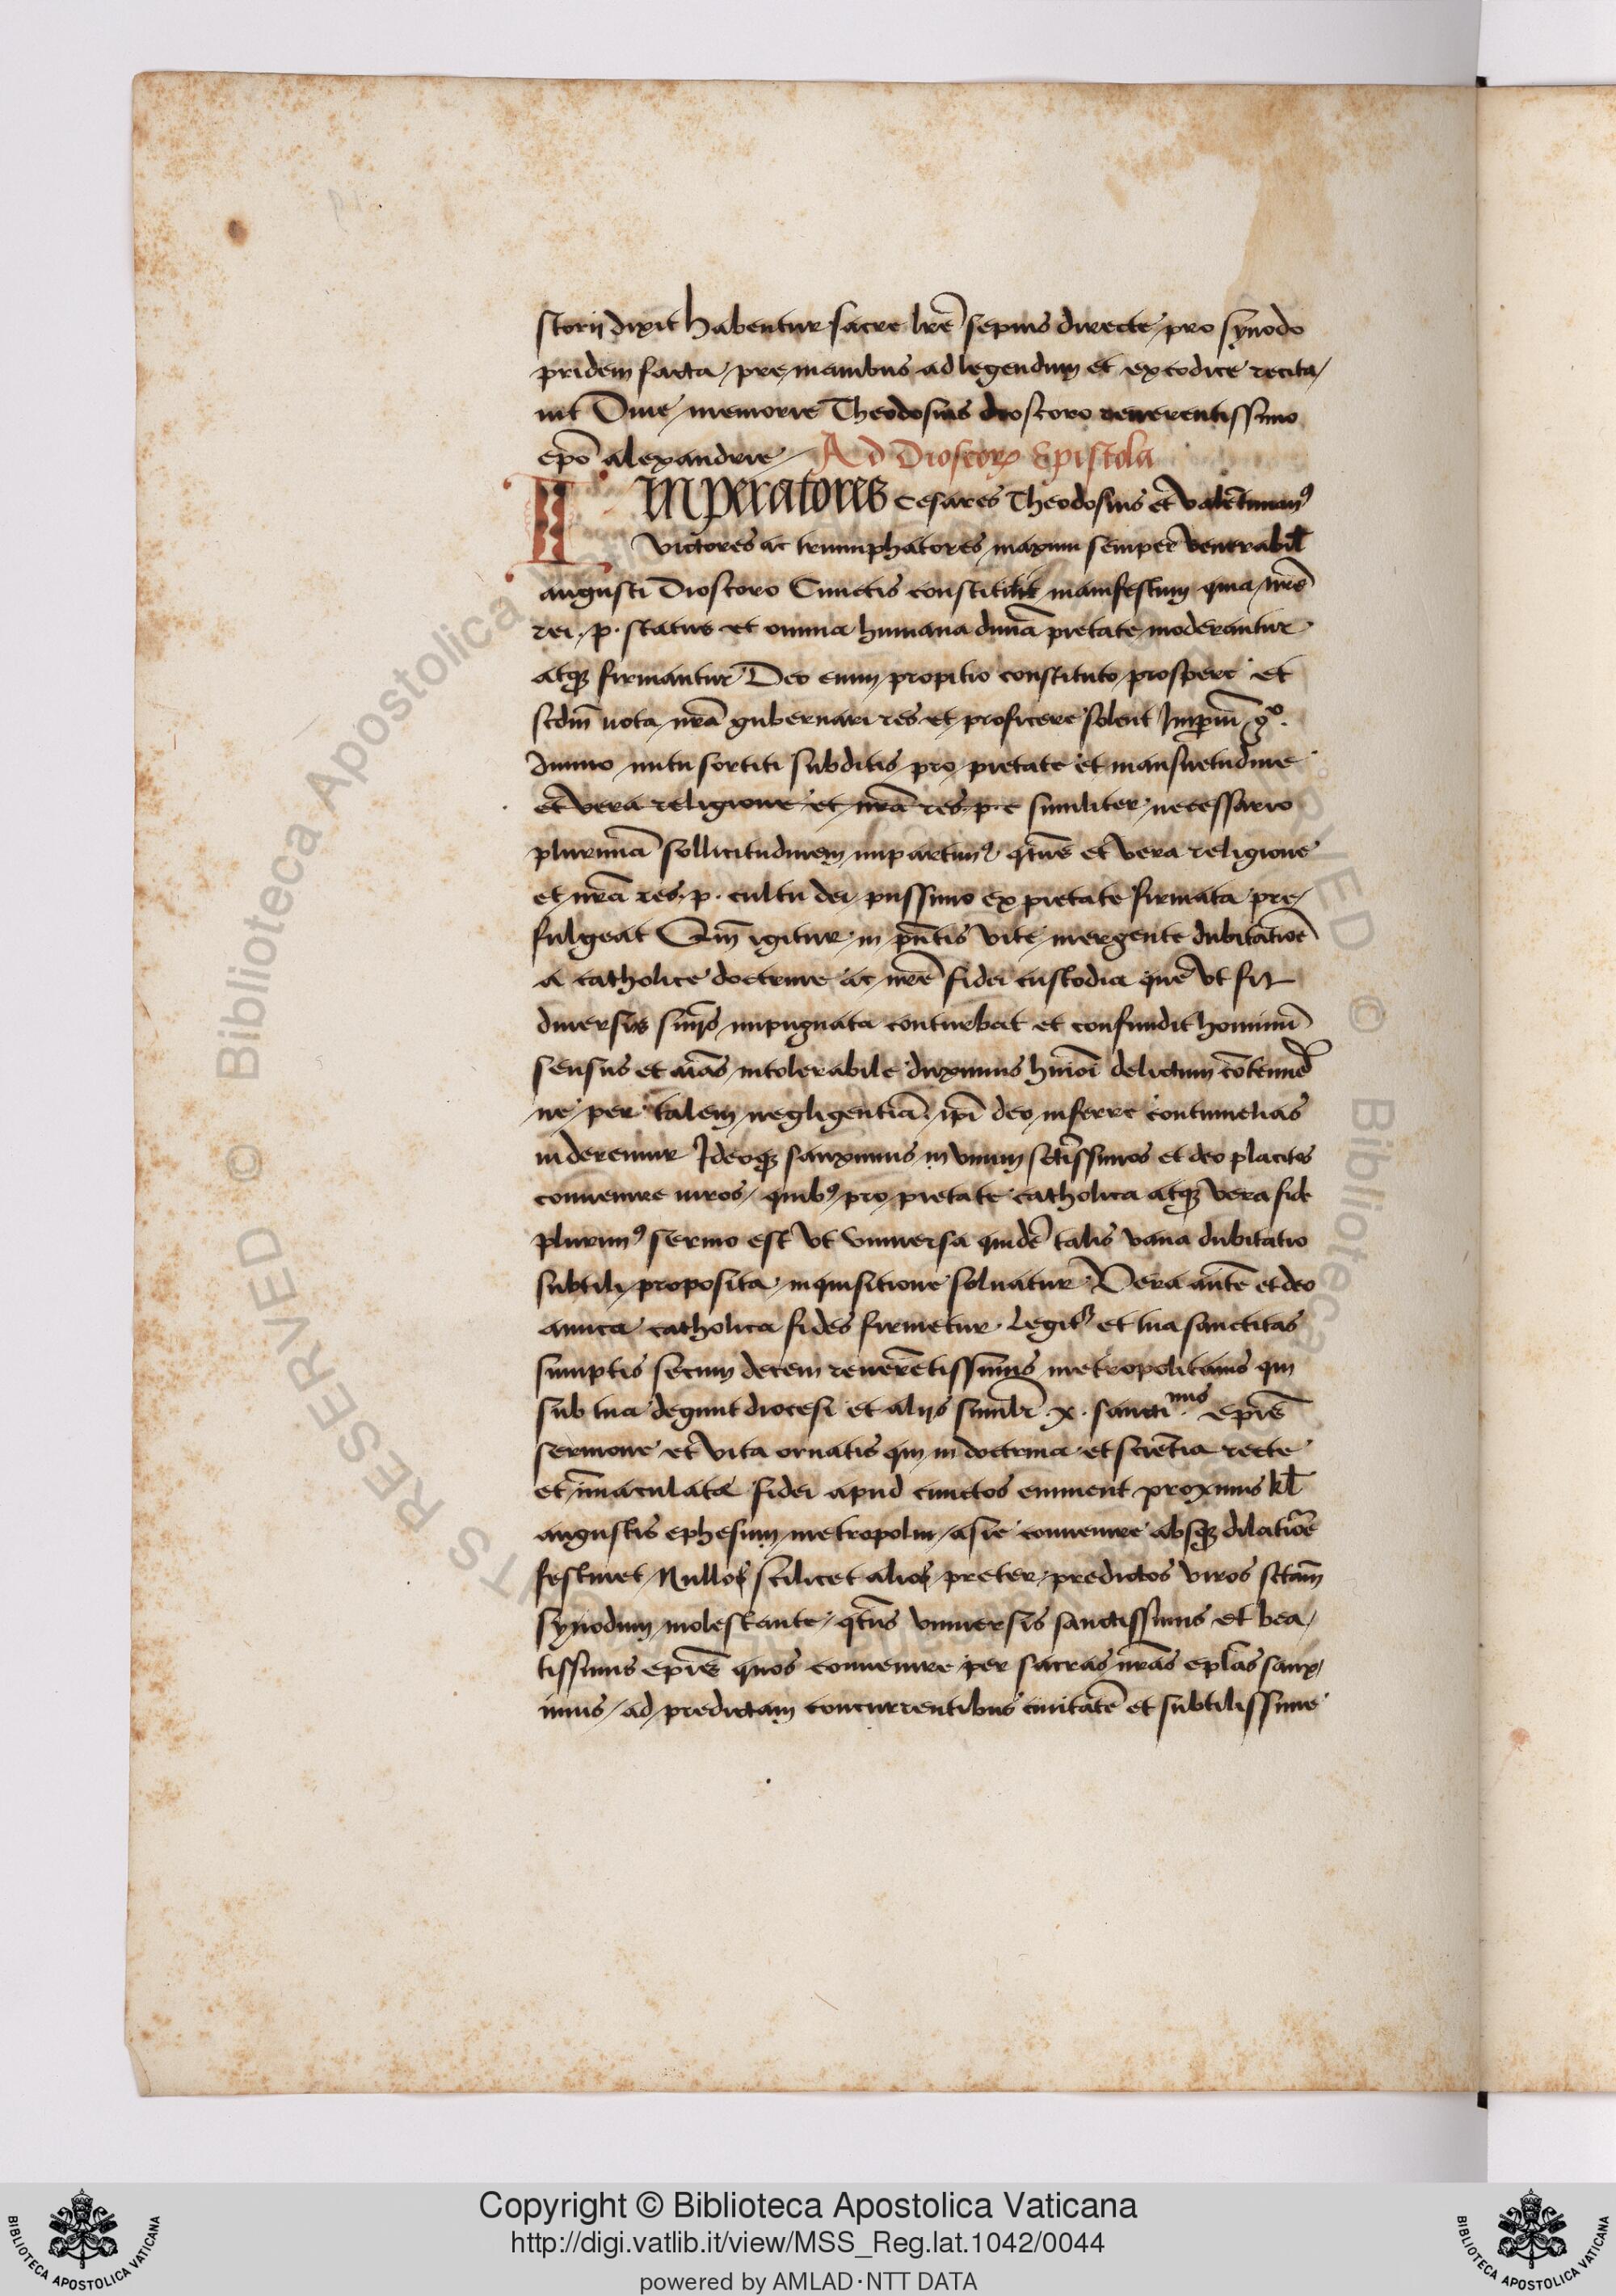 storij dixit habentur sacre lr̄e sepius directe pro synodo
pridem facta pre manibus ad legendum et ex codice recita/
uit Diue memorie Theodosius dioscoro reuerentissimo
epō alexandrie Ad Dioscorꝝ Epistola
IMperatores Cesares Theodosius et valētinianꝰ
victores ac triumphatores maximi semper venerabil̄
augusti Dioscoro Cunctis constitit manifestum quia nr̄e
rei .p. status et omnia humana diuīa pietate moderantur
atqꝫ firmantur Deo enim propitio constituto prospere et
scdm̄ uota nr̄a gubernari res et proficere solent Imperiū gͦ.
diuino nutu sortiti subditis pro pietate et mansuetudine
et vera religione et nr̄a res .p. e similiter necessario
plurimā sollicitudinem impartimꝰ qtūs et vera religione
et nr̄a res .p. cultu dei piissimo ex pietate firmata pre/
fulgeat Qm̄ igitur in pn̄tis vite mergente dubitatioē
a catholice doctrine ac nr̄e fidei custodia que vt fit
diuersis sinijs impugnata conturbat et confundit hominū
sensus et aīas intolerabile duximus hm̄oi delictum cōtemnē
ne per talem negligentiā ip̄i deo inferre contumelias
uideremur Ideoqꝫ sanximus in vnum sctīssimos et deo placitos
conuenire uiros quibꝰ pro pietate catholica atqꝫ vera fide
plurimꝰ sermo est vt vniuersa quidē talis vana dubitatio
subtili proposita inquisitione soluatur Vera autē et deo
amica catholica fides firmetur Legitᷣ et tua sanctitas
sumptis secum decem reuerētissimis metropolitanis qui
sub tua degunt diocesi et alijs simlr̄ .x. sanctimis epīs
sermone et vita ornatis qui in doctrina et sciētia recte
et īmaculate fidei apud cunctos eminent proximis kl̄
augustis ephesum metropolim asie conuenire absqꝫ dilatiōe
festinet Nullos scilicet alios preter predictos viros sctām
synodum molestante qtūs vniuersis sanctissimis et bea/
tissimis epīs quos conuenire per sacras nr̄as eplās sanx/
imus ad predictam concurrentibus ciuitatē et subtilissime
Copyright © Biblioteca Apostolica Vaticana
http://digi.vatlib.it/view/MSS_Reg.lat.1042/0044
powered by AMLAD·NTT DATA